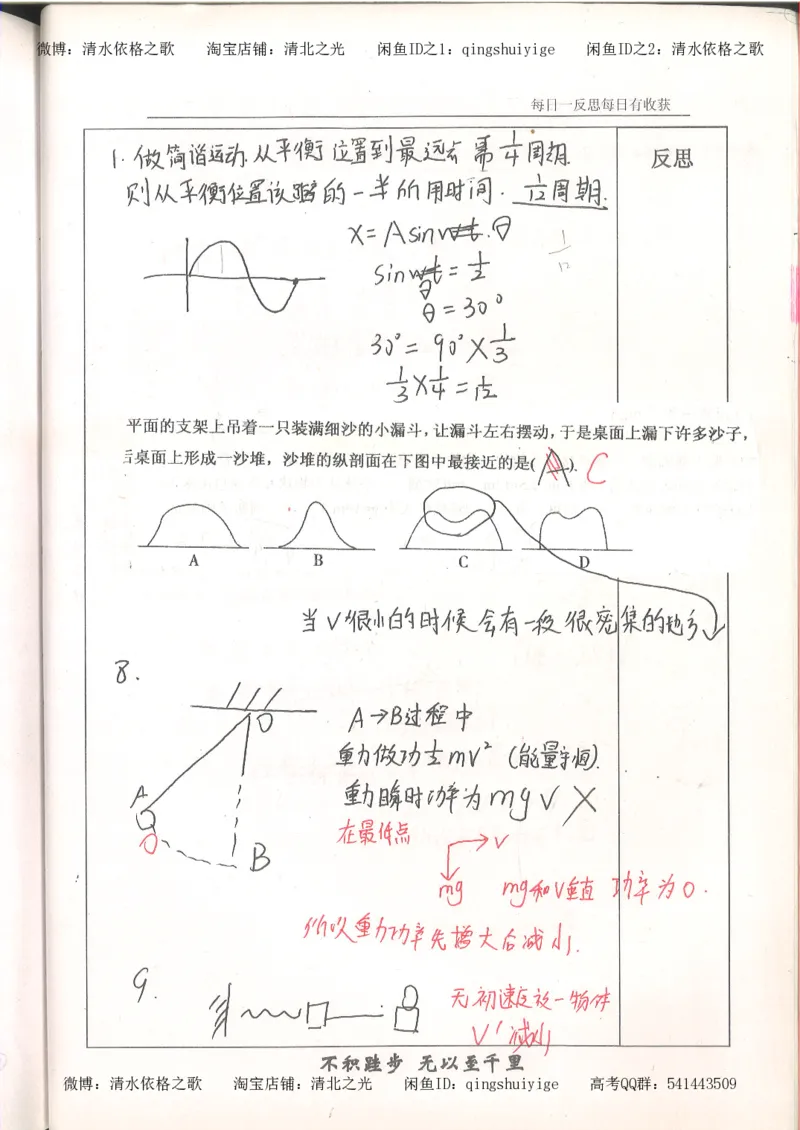 微博：清水依格之歌 淘宝店铺：清北之光 闲鱼ID之1：qingshuiyige 闲鱼ID之2：清水依格之歌
每日一反思每日有收获
反思
1. 做简谐运动.从平衡位置到最远点需1/4周期.
则从平衡位置该距离的一半所用时间. 1/12周期.
x=Asin wt. θ
sin wt = 1/2
θ
θ=30°
30°=90°×1/3
1/3×1/4=1/12
1/12
平面的支架上吊着一只装满细沙的小漏斗，让漏斗左右摆动，于是桌面上漏下许多沙子，
后桌面上形成一沙堆，沙堆的纵剖面在下图中最接近的是( A ). C
A B C D
当V很小的时候会有一段很密集的地方
8.
O
A→B过程中
重力做功½mv² (能量守恒).
重力瞬时功率为mgv ×
A
在最低点
B
v
mg mg和v垂直 功率为0.
所以重力功率先增大后减小.
9.
无初速度放一物体
V'减小
不积跬步 无以至千里
微博：清水依格之歌 淘宝店铺：清北之光 闲鱼ID：qingshuiyige 高考QQ群：541443509